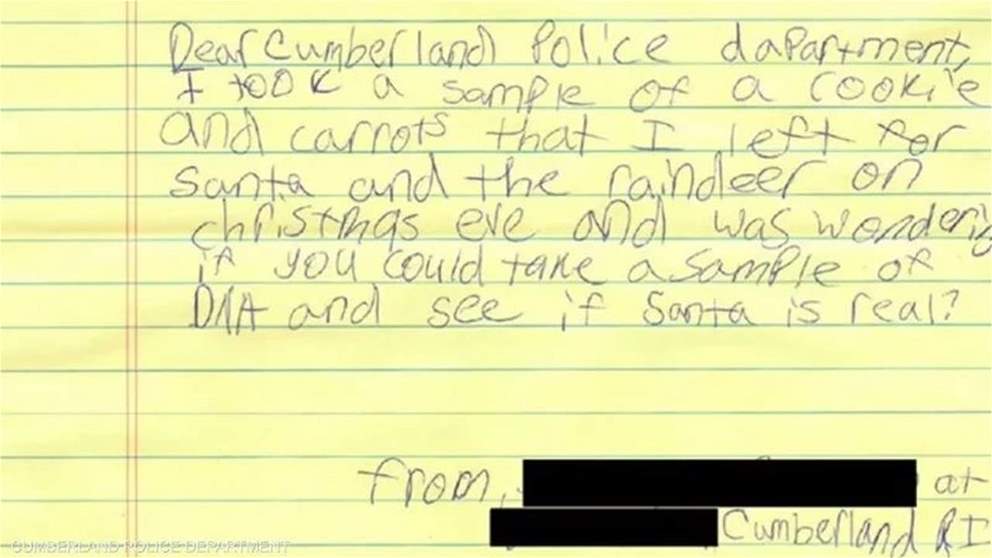 Dear Cumberland Police dapartment,
I took a sample of a cookie
and carrots that I left for
santa and the raindeer on
christmas eve and was wondering
if you could take a sample of
DNA and see if Santa is real?
from, at
Cumberland RI
CUMBERLAND POLICE DEPARTMENT